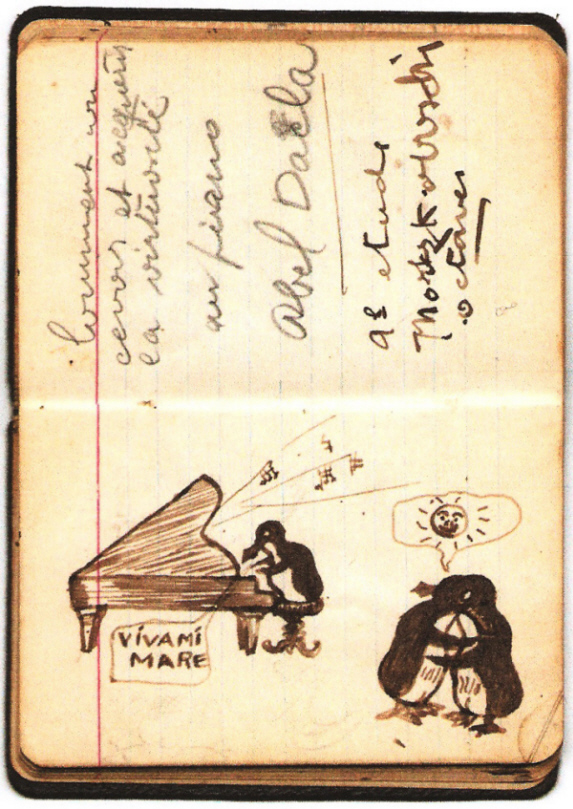 Comment con
cevoir et acquérir
la virtuosité
au piano
Abel
etude
Moszkowski
octaves
VIVA MI
MARE